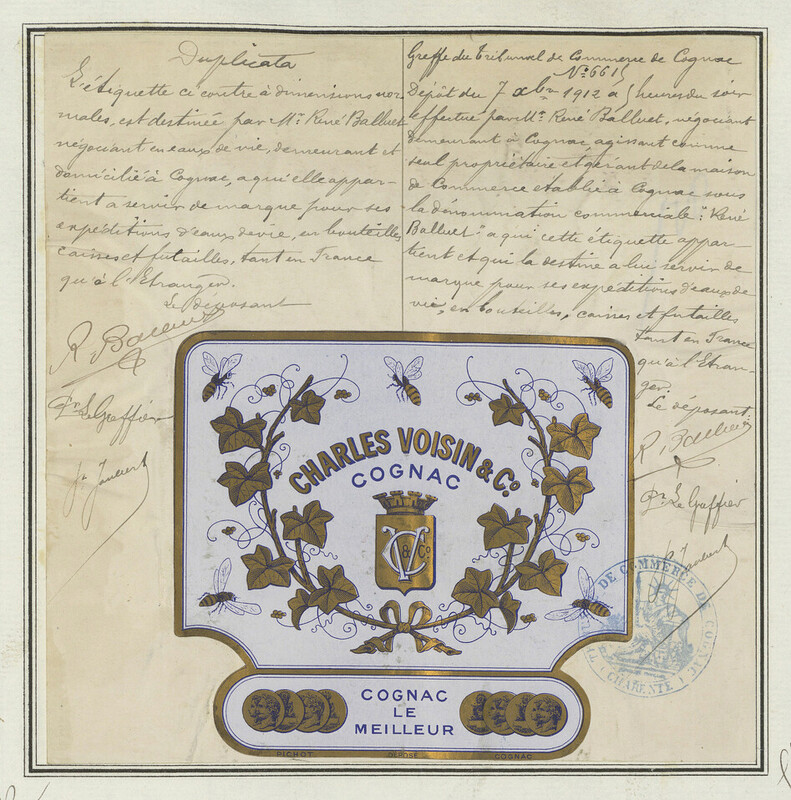 Duplicata
L'étiquette ci contre à dimensions nor-
males, est destinée par Mr. René Balluet
négociant en eaux de vie, demeurant et
domicilié à Cognac, a qui elle appar-
tient a servir de marque pour ses
expéditions d'eaux de vie, en bouteilles,
caisses et futailles, tant en France
qu'à l'Etranger.
Le déposant
R. Balluet
Pr. Le Greffier
Greffe du Tribunal de Commerce de Cognac
No. 661
Dépôt du 7 xbre 1912 à 5 heures du soir
effectué par Mr. René Balluet, négociant
demeurant à Cognac, agissant comme
seul propriétaire et gérant de la maison
de Commerce etablie à Cognac sous
la dénomination commerciale: "René
Balluet" a qui cette étiquette appar-
tient et qui la destine a lui servir de
marque pour ses expéditions d'eaux de
vie, en bouteilles, caisses et futailles
tant en France
qu'à l'Etran-
ger.
Le déposant:
R. Balluet
Pr. Le Greffier
CHARLES VOISIN & Co.
COGNAC
VC & Co
COGNAC
LE
MEILLEUR
PICHOT DÉPOSÉ COGNAC
DE COMMERCE DE COGNAC
CHARENTE